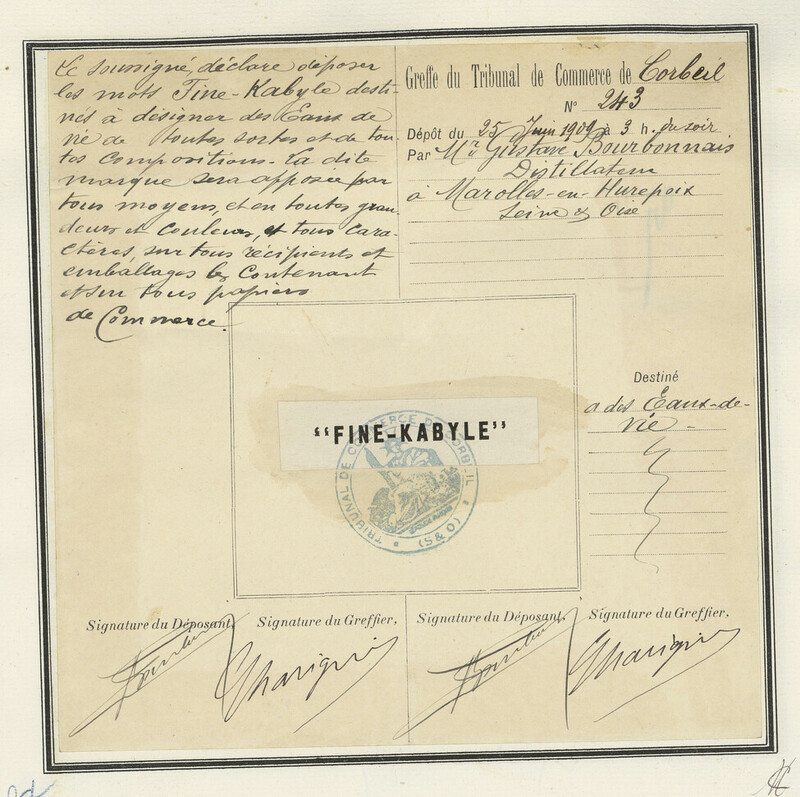 Le soussigné, déclare déposer
les mots Fine-Kabyle desti-
nés à désigner des Eaux de
vie de toutes sortes et de tou-
tes compositions. La dite
marque sera apposée par
tous moyens, et en toutes gran-
deurs et couleurs, et tous cara-
ctères, sur tous récipients et
emballages les contenant
et sur tous papiers
de Commerce.
Greffe du Tribunal de Commerce de Corbeil
N° 243
Dépôt du 25 Juin 1909 à 3 h. du soir
Par Mr Gustave Bourbonnais
Distillateur
à Marolles-en-Hurepoix
Seine & Oise
"FINE-KABYLE"
TRIBUNAL DE COMMERCE DE CORBEIL
(S & O)
Destiné
a des Eaux-de-
vie
Signature du Déposant,
Signature du Greffier,
Signature du Déposant,
Signature du Greffier,